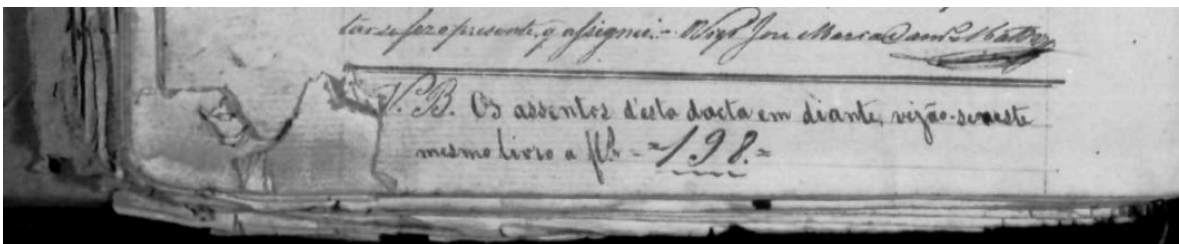 tar se fez o presente, q assignei. - O Vigº José Maria Cand.
N. B. Os assentos d'esta dacta em diante, vejão-se neste
mesmo livro a fl. - = 198. =